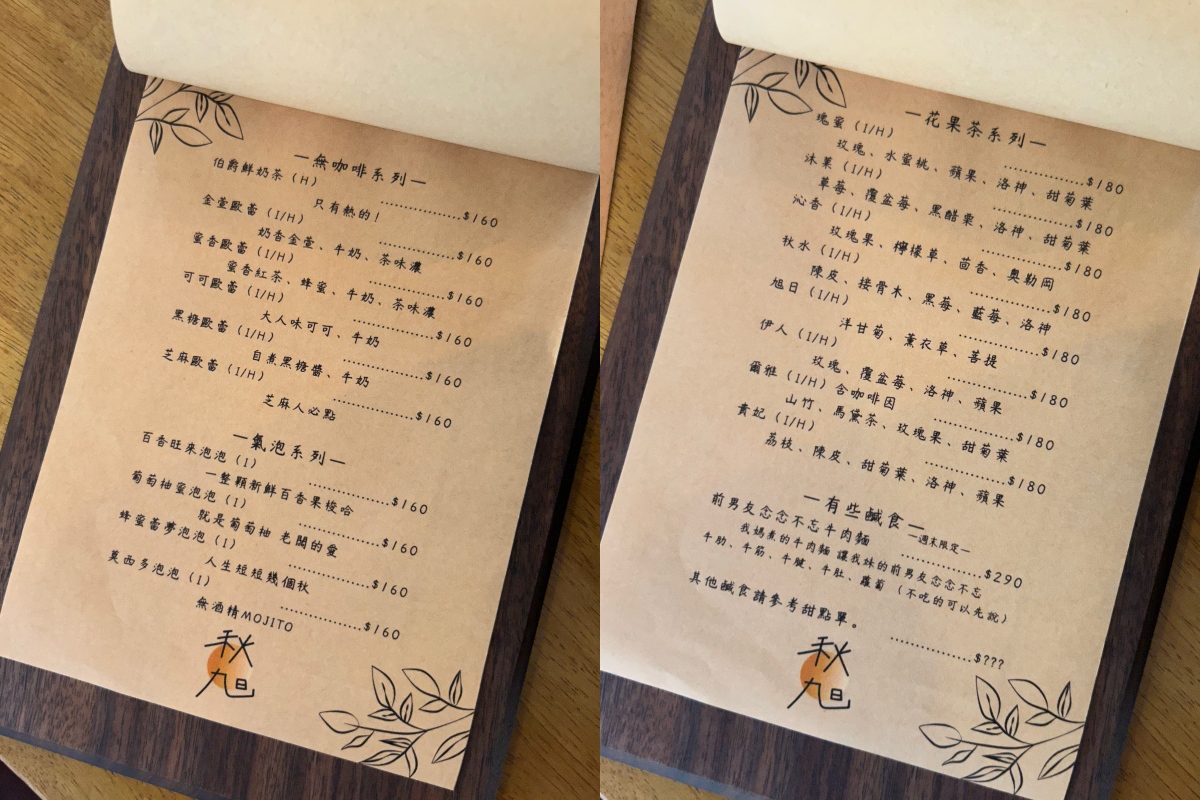 —無咖啡系列—
伯爵鮮奶茶（H）
..................$160
只有熱的！
金萱歐蕾（I/H）
..................$160
奶香金萱、牛奶、茶味濃
蜜香歐蕾（I/H）
..................$160
蜜香紅茶、蜂蜜、牛奶、茶味濃
可可歐蕾（I/H）
..................$160
大人味可可、牛奶
黑糖歐蕾（I/H）
..................$160
自煮黑糖醬、牛奶
芝麻歐蕾（I/H）
..................$160
芝麻人必點
—氣泡系列—
百香旺來泡泡（I）
..................$160
一整顆新鮮百香果梭哈
葡萄柚蜜泡泡（I）
..................$160
就是葡萄柚 老闆的愛
蜂蜜蕾夢泡泡（I）
..................$160
人生短短幾個秋
莫西多泡泡（I）
..................$160
無酒精MOJITO
秋
旭
—花果茶系列—
瑰蜜（I/H）
..................$180
玫瑰、水蜜桃、蘋果、洛神、甜菊葉
沐菓（I/H）
..................$180
草莓、覆盆莓、黑醋栗、洛神、甜菊葉
沁香（I/H）
..................$180
玫瑰果、檸檬草、茴香、奧勒岡
秋水（I/H）
..................$180
陳皮、接骨木、黑莓、藍莓、洛神
旭日（I/H）
..................$180
洋甘菊、薰衣草、菩提
伊人（I/H）
..................$180
玫瑰、覆盆莓、洛神、蘋果
爾雅（I/H）含咖啡因
..................$180
山竹、馬黛茶、玫瑰果、甜菊葉
貴妃（I/H）
..................$180
荔枝、陳皮、甜菊葉、洛神、蘋果
—有些鹹食—
—週末限定—
前男友念念不忘牛肉麵
..................$290
我媽煮的牛肉麵 讓我妹的前男友念念不忘
牛肋、牛筋、牛腱、牛肚、蘿蔔（不吃的可以先說）
其他鹹食請參考甜點單。
..................$???
秋
旭